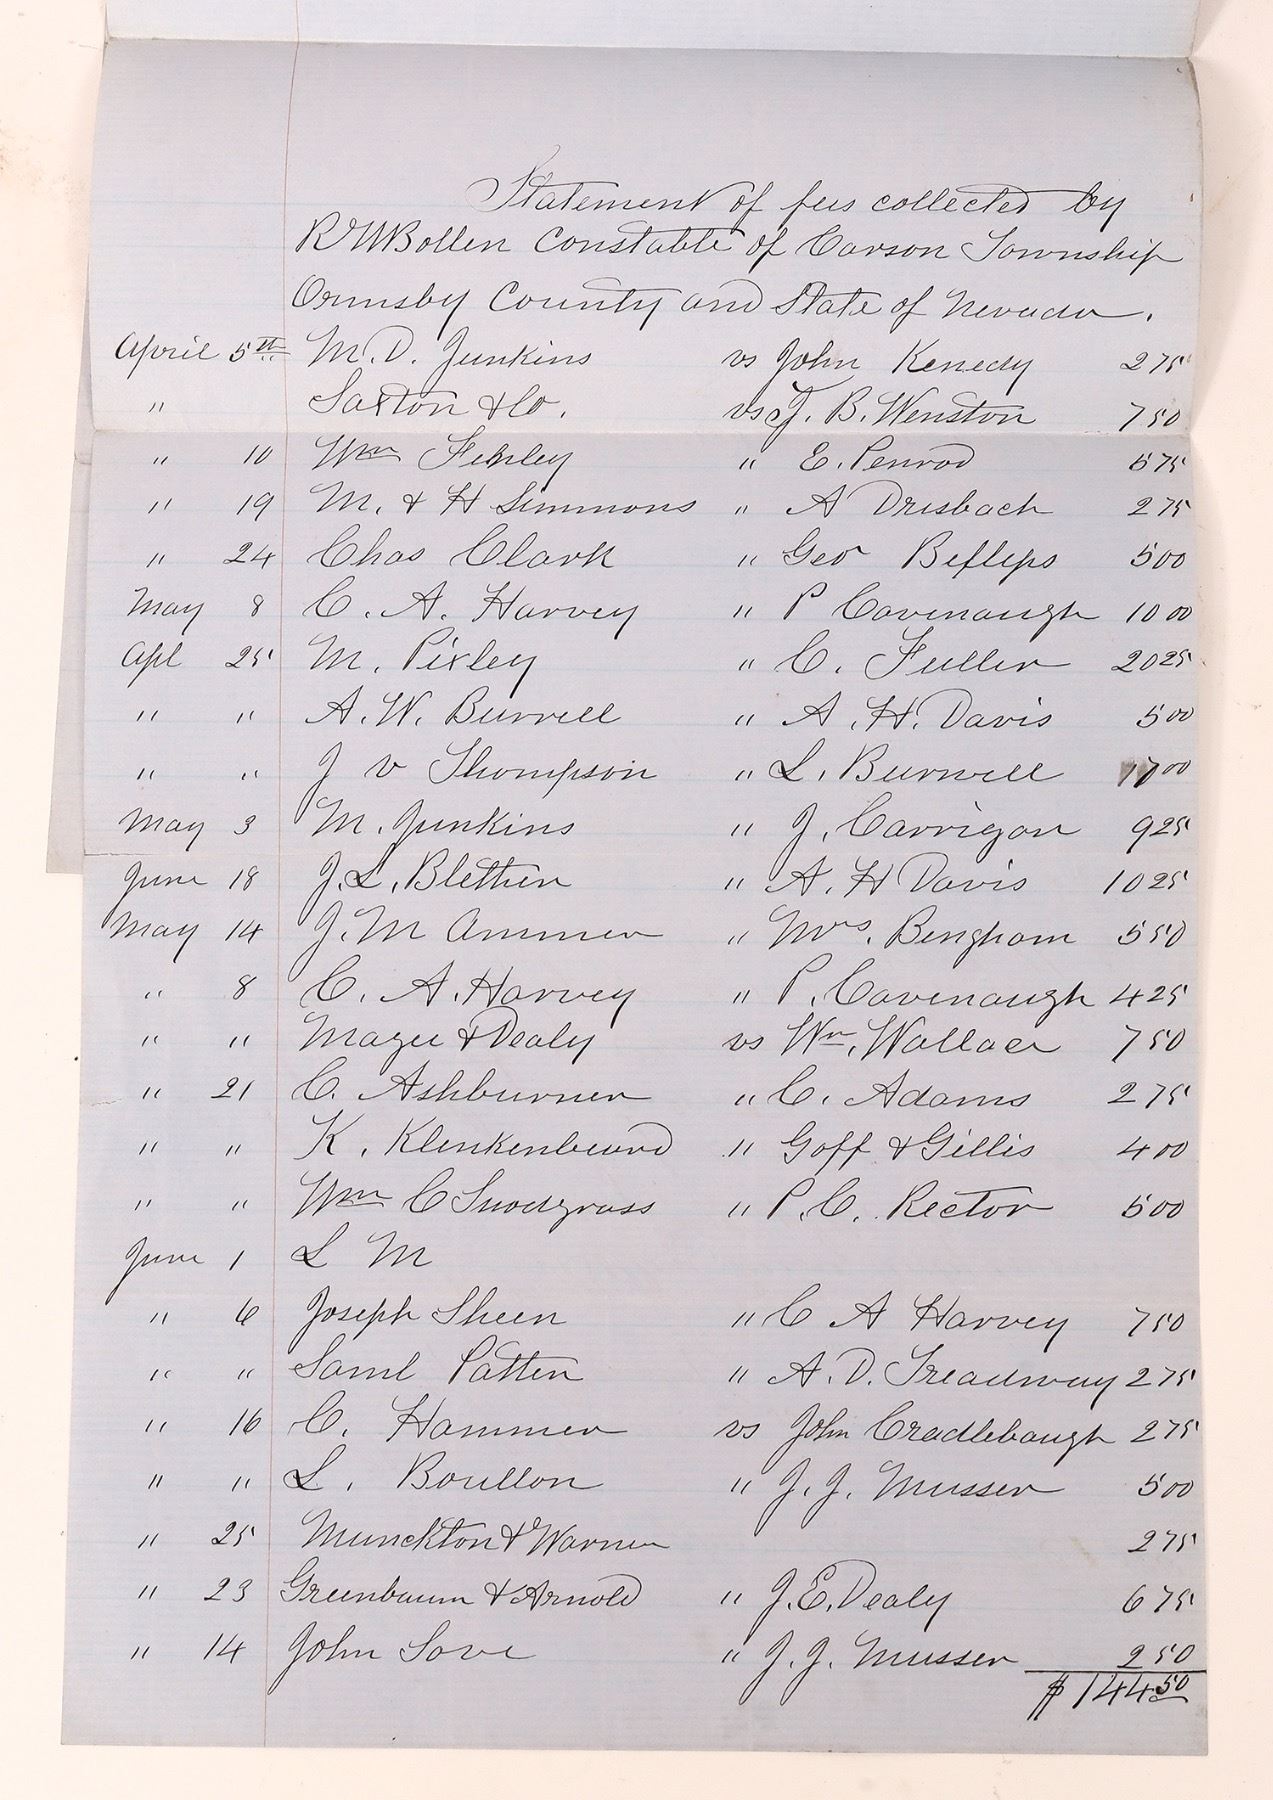 Statement of fees collected by
R W Bollen Constable of Carson Township
Ormsby County and State of Nevada.
April 5th M. D. Junkins vs John Kenedy 2 75
" Saxton & Co. vs J. B. Winston 7 50
" 10 Wm E. Penrod 5 75
" 19 M. & H Simmons " A Drisbach 2 75
" 24 Chas Clark " Geo 5 00
May 8 C. A. Harvey " P Cavenaugh 10 00
Apl 25 M. Pixley " C. Fuller 20 25
" " A. W. Burrell " A. H. Davis 5 00
" " J v Thompson " L. Burwell 17 00
May 3 M. Junkins " J. Carrigan 9 25
June 18 J. L. Blethen " A. H Davis 10 25
May 14 J. M Ammer " Mrs. Bingham 5 50
" 8 C. A. Harvey " P. Cavenaugh 4 25
" " Magee & Dealy vs Wm. Wallace 7 50
" 21 C. Ashburner " C. Adams 2 75
" " K. Klinkenbeard " Goff & Gillis 4 00
" " Wm C Snodgrass " P. C. Rector 5 00
June 1 L M
" 6 Joseph Sheen " C A Harvey 7 50
" " Saml Patten " A. D. Treadway 2 75
" 16 C. Hammer vs John Cradlebaugh 2 75
" " L. Boullon " J. J. Musser 5 00
" 25 Munckton & Warner 2 75
" 23 Greenbaum & Arnold " J. E. Dealy 6 75
" 14 John Love " J. J. Musser 2 50
$ 144 50